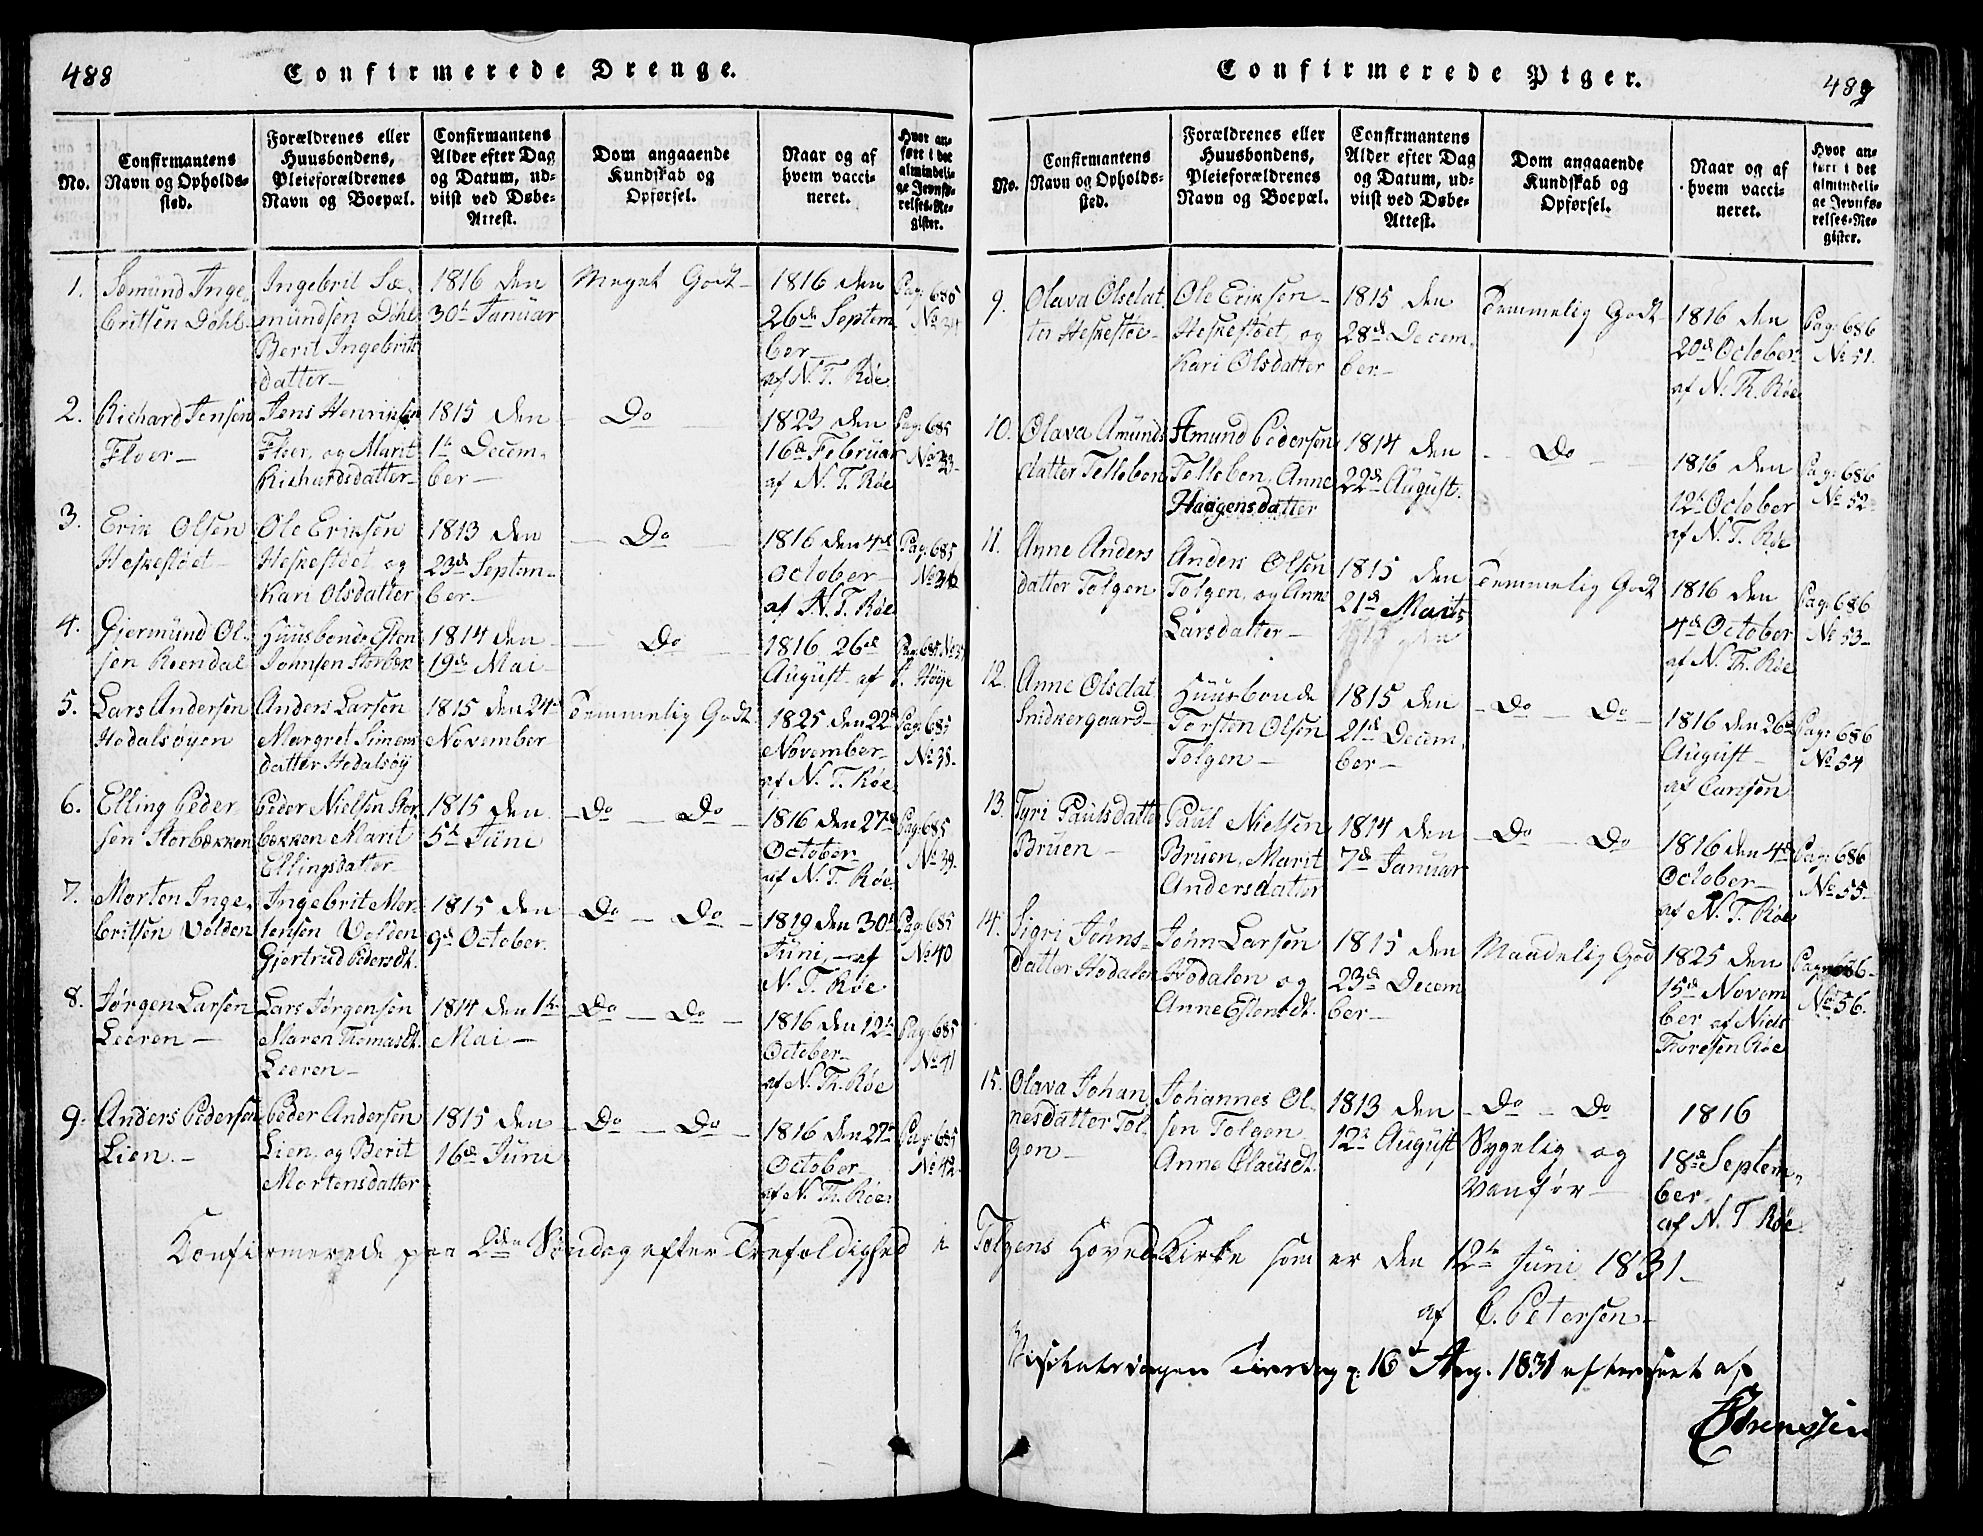 488
Confirmerede Drenge.
No.
Confirmantens
Navn og Opholds-
sted.
Forældrenes eller
Huusbondens,
Pleieforældrenes
Navn og Boepæl.
Confirmantens
Alder efter Dag
og Datum, ud-
viist ved Døbe-
Attest.
Dom angaaende
Kundskab og
Opførsel.
Naar og af
hvem vacci-
neret.
Hvor an-
ført i det
almindeli-
ge Jevnfø-
relses-Re-
gister.
1.
Semund Inge,
britsen Døhl
Ingebrit Sæ,
mundsen Døhl
Berit Ingebrits
datter
1816 den
30t Januar
Meget Godt
1816 den
26de Septem
ber
af N. T. Røe
Pag: 685
No 34
2.
Richard Jensen
Floer
Jens Henriksen
Floer, og Marit
Richardsdatter
1815 den
1te Decem,
ber
Do
1823 den
16de Februar
af N. T. Røe
Pag: 685
3.
Erik Olsen
Heskestøet
Ole Eriksen
Heskestøet og
Kari Olsdatter
1813 den
23de Septem
ber
Do
1816 den 4de
October
af N. T. Røe
Pag: 685
No 36
4.
Gjermund Ol-
sen Reendal
Huusbonde Esten
Johnsen Storbæk
1814 den
19de Mai
Do
1816 26de
August af P. Høye
Pag: 685
5.
Lars Andersen
Hodalsøyen
Anders Larsen
Margret Simens
datter Hodalsøy
1815 den 24de
November
Temmelig Godt
1825 den 22de
November
af N. T. Røe
Pag: 685
No 38.
6.
Elling Peder
sen Storbækken
Peder Nielsen Stor,
bækken Marit
Ellingsdatter
1815 den
5te Juni
Do Do
1816 den 27de
October
af N. T. Røe
Pag: 685
No 39.
7.
Morten Inge,
britsen Volden
Ingebrit Mor-
tensen Volden
Gjertrud Pedersdt.
1815 den
9de October.
Do Do
1819 den 30te
Juni, af
N. T. Røe
Pag: 685
No 40
8.
Jørgen Larsen
Leeren
Lars Jørgensen
Maren Thomasdt.
Leeren
1814 den 1te
Mai
Do Do
1816 den 12te
October
af N. Th. Røe
Pag: 685
No 41
9.
Anders Pedersen
Lien.
Peder Andersen
Lien, og Berit
Mortensdatter
1815 den
16de Juni
Do Do
1816 den 27de
October
af N. Th. Røe
Pag: 685
No 42
Confirmerede Piger.
489
No.
Confirmantens
Navn og Opholds-
sted.
Forældrenes eller
Huusbondens,
Pleieforældrenes
Navn og Boepæl.
Confirmantens
Alder efter Dag
og Datum, ud-
viist ved Døbe-
Attest.
Dom angaaende
Kundskab og
Opførsel.
Naar og af
hvem vacci-
neret.
Hvor an-
ført i det
almindeli-
ge Jevnfø-
relses-Re-
gister.
9.
Olava Olsdat
ter Heskestøe
Ole Eriksen
Heskestøet, og
Kari Olsdatter
1815 den
28de Decem,
ber.
Temmelig Godt
1816 den
20de October
af N. Th. Røe
Pag: 686
No 51.
10.
Olava Amunds
datter Telleben
Amund Pedersen
Telleben, Anne
Haagensdatter
1814 den
22de August.
Do
1816 den
12te October
af N. T. Røe
Pag: 686
No 52
11.
Anne Anders
datter Tolgen
Anders Olsen
Tolgen, og Anne
Larsdatter
1815 den
21de Marts
Temmelig Godt
1816 den
4de October
af N. Th. Røe
Pag: 686
No 53
12.
Anne Olsdat
Snidkergaard
Huusbonde
Torsten Olsen
Tolgen
1815 den
21de Decem,
ber
Do Do
1816 den 26de
August
af Cansen
Pag: 686
No 54
13.
Tyri Paulsdatter
Bruen
Paul Nielsen
Bruen, Marit
Andersdatter
1814 den
7de Januar
Do Do
1816 den 4de
October
af N. T. Røe
Pag: 686
No 55
14.
Sigri Johns-
datter Hodalen
John Larsen
Hodalen og
Anne Estensdt.
1815 den
23de Decem
ber
Maadelig God
1825 den
15de Novem
ber af Niels
Thoresen Røe
Pag: 686
No 56.
15.
Olava Johan
nesdatter Tol-
gen
Johannes Ol-
sen Tolgen
Anne Clausdt.
1813 den
12te August
Do Do
Sygelig og
vanfør
1816
18de Septem,
ber
af N. T. Røe
Confirmerede paa 2den Søndag efter Trefoldighed i Tolgens Hoved Kirke som er den 12te Juni 1831
af C. Petersen
Tirsdag 16d Aug. 1831 efterseet af